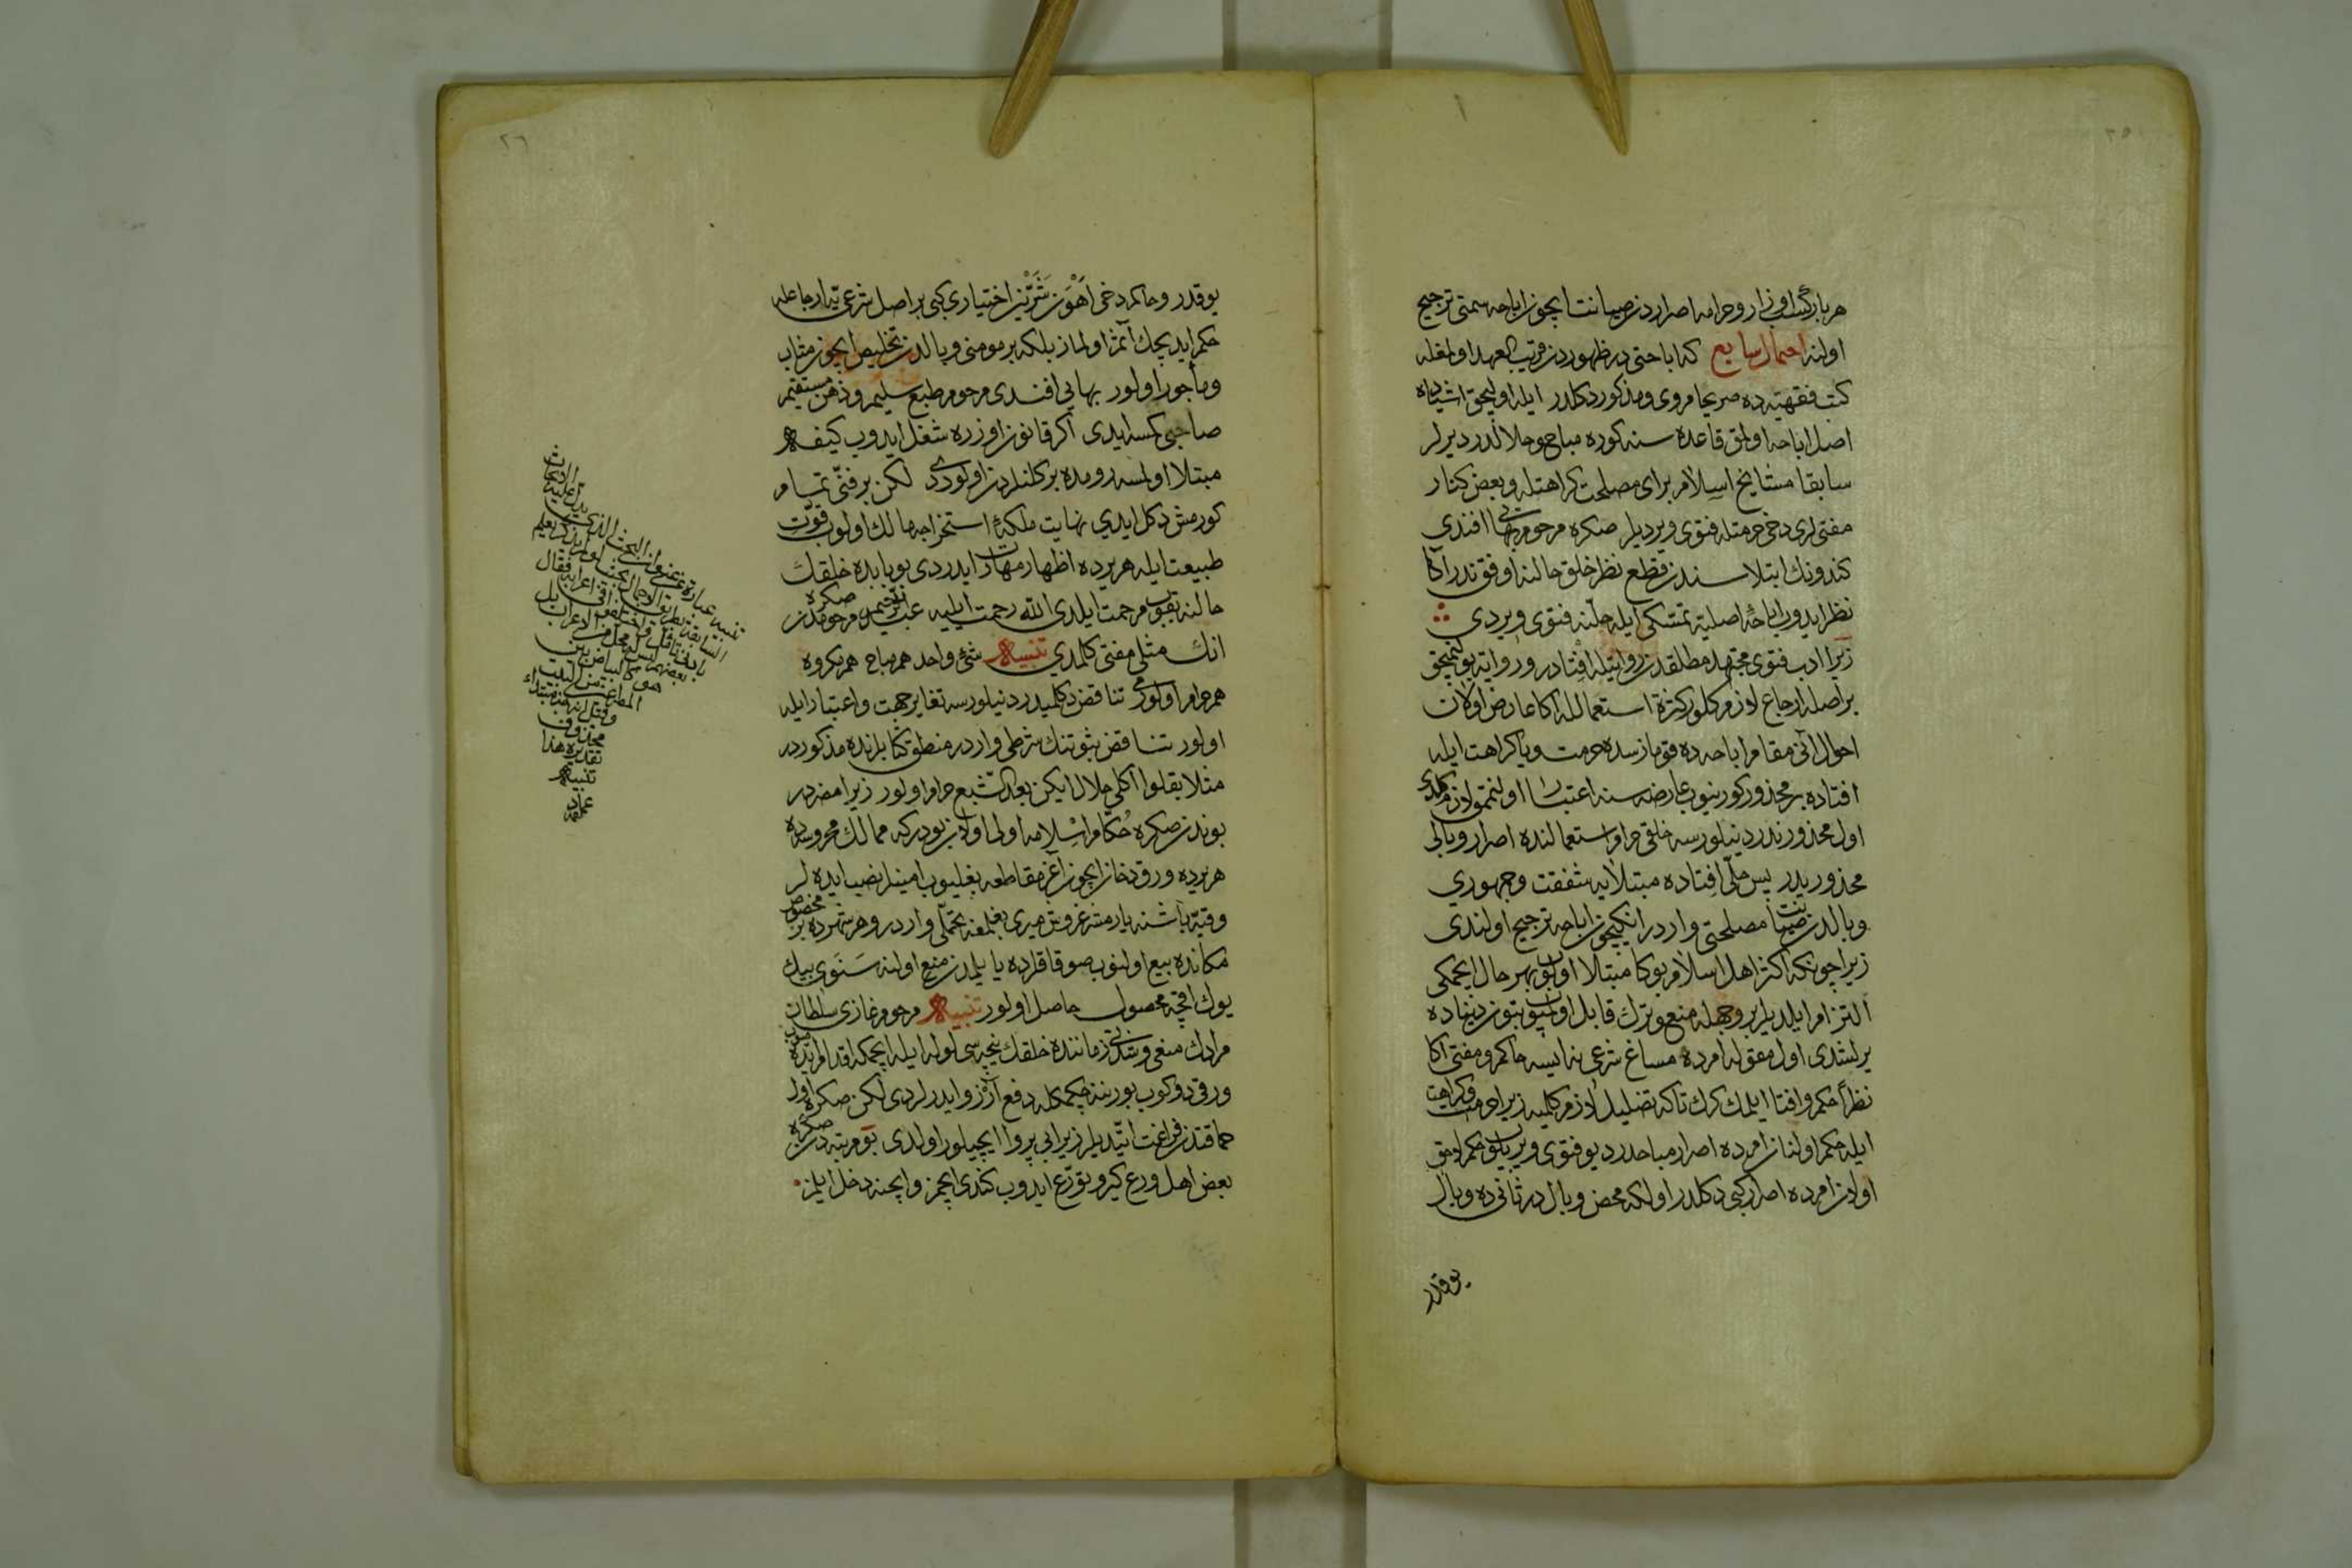 هر بار گران اوزار و حرامه اصراردن صيانت ايچون اباحه سمتی ترجيح
اولنه احتمال سابع كه اباحتی در ظهوردن قريب العهد اولمغله
كتب فقهيه ده صريحا مروی و مذكور دكلدر ايله اوليجق اشياده
اصل اباحه اولمق قاعده سنه كوره مباح و حلالدر ديرلر
سابقا مشايخ اسلام برای مصلحت كراهتله و بعض كنار
مفتيلری دخی حرمتله فتوی ويرديلر صكره مرحوم بهائی افندی
كندونك ابتلاسندن قطع نظر خلق حالنه اوفق ندر اكا
نظر ايدوب اباحهٔ اصليه تمسكی ايله حلنه فتوی ويردی
زيرا ادب فتوی مجتهد مطلقدن روايتله افتادر و روايت بولنميجق
بر اصله ارجاع لازم كلور كثرة استعمالله اكا عارض اولان
احوال انی مقام اباحه ده قومازسه ده حرمت ويا كراهت ايله
افتاده بر محذور كورينوب عارضه سنه اعتبار اولنمق لازم كلدی
اول محذور ندر دينلورسه خلقی حرام استعمالنده اصرار وبالی
محذوريدر پس حلی افتاده مبتلايه شفقت و جمهوری
وبالدن صيانت مصلحتی واردر انكيچون اباحه ترجيح اولندی
زيرا چونكه اكثر اهل اسلام بوكا مبتلا اولوب بهر حال ايچمكی
التزام ايلديلر بر وجهله منع و ترك قابل اولميوب بتون دنياده
يرلشدی اول مقوله امرده مساغ شرعی نه ايسه حاكم و مفتی اكا
نظرا حكم و افتا ايلمك كرك تاكه تضليل لازم كلميه زيرا حرمت و كراهت
ايله حكم اولنان امرده اصرار مباحدر ديو فتوی ويريلوب حكم لاحق
اولان امرده اصرار كبی دكلدر اولكه محض وبال در ثانی ده وبال
يوقدر
يوقدر و حاكم دخی اهون شرين اختياری كبی بر اصل شرعی يه ارجاعله
حكم ايديجك آثم اولماز بلكه بر مومنی وبالدن تخليص ايچون مثاب
و مأجور اولور بهائی افندی مرحوم طبع سليم و ذهن مستقيم
صاحبی كسه ايدی اكر قانون اوزره شغل ايدوب كيفه
مبتلا اولمسه رومده بر كلنلردن اولوردی لكن بر فنی تمام
كورمش دكل ايدی نهايت ملكهٔ استخراجه مالك اولوب قوت
طبيعت ايله هر يرده اظهار مهارت ايدردی بو بابده خلقك
حالنه بقوب مرحمت ايلدی الله رحمت ايليه عبد الرحيم مرحومدن صكره
انك مثلی مفتی كلمدی تنبيه شئ واحد هم مباح هم مكروه
هم حرام اولورمی تناقض دكلميدر دينلورسه تغاير جهت و اعتبار ايله
اولور تناقض ثبوتنك شرطی واردر منطق كتابلرنده مذكوردر
مثلا بقلوا اكلی حلال ايكن بعد الشبع حرام اولور زيرا مضردر
بوندن صكره حكام اسلامه اولی اولان بودركه ممالك محروسه ده
هر يرده ورق دخان ايچون آغر مقاطعه بغليوب امينلر نصب ايده لر
وقيه باشنه يارمشر غروش ميری بغلمغه تحملی واردر و هر شهرده بر مخصوص
مكانده بيع اولنوب صوقاقلرده يايلمدن منع اولنه سنوی بيك
يوك اقچه محصول حاصل اولور تنبيه مرحوم غازی سلطان
مرادك منعی و شدتی زماننده خلقك نيچه سی لوله ايله ايچمكه اقدام ايتميوب
ورقی دوكوب بورننه چكمكله دفع آرزو ايدرلردی لكن صكره اول
حماقتدن فراغت ايتديلر زيرا بی پروا ايچيلور اولدی بو مرتبه دن صكره
بعض اهل ورع كيرو تورع ايدوب كندی ايچمز و ايچنه دخل ايلمز
بعضهم ليس له محل من الاعراب
محذوف
تقديره هذا
تنبيه